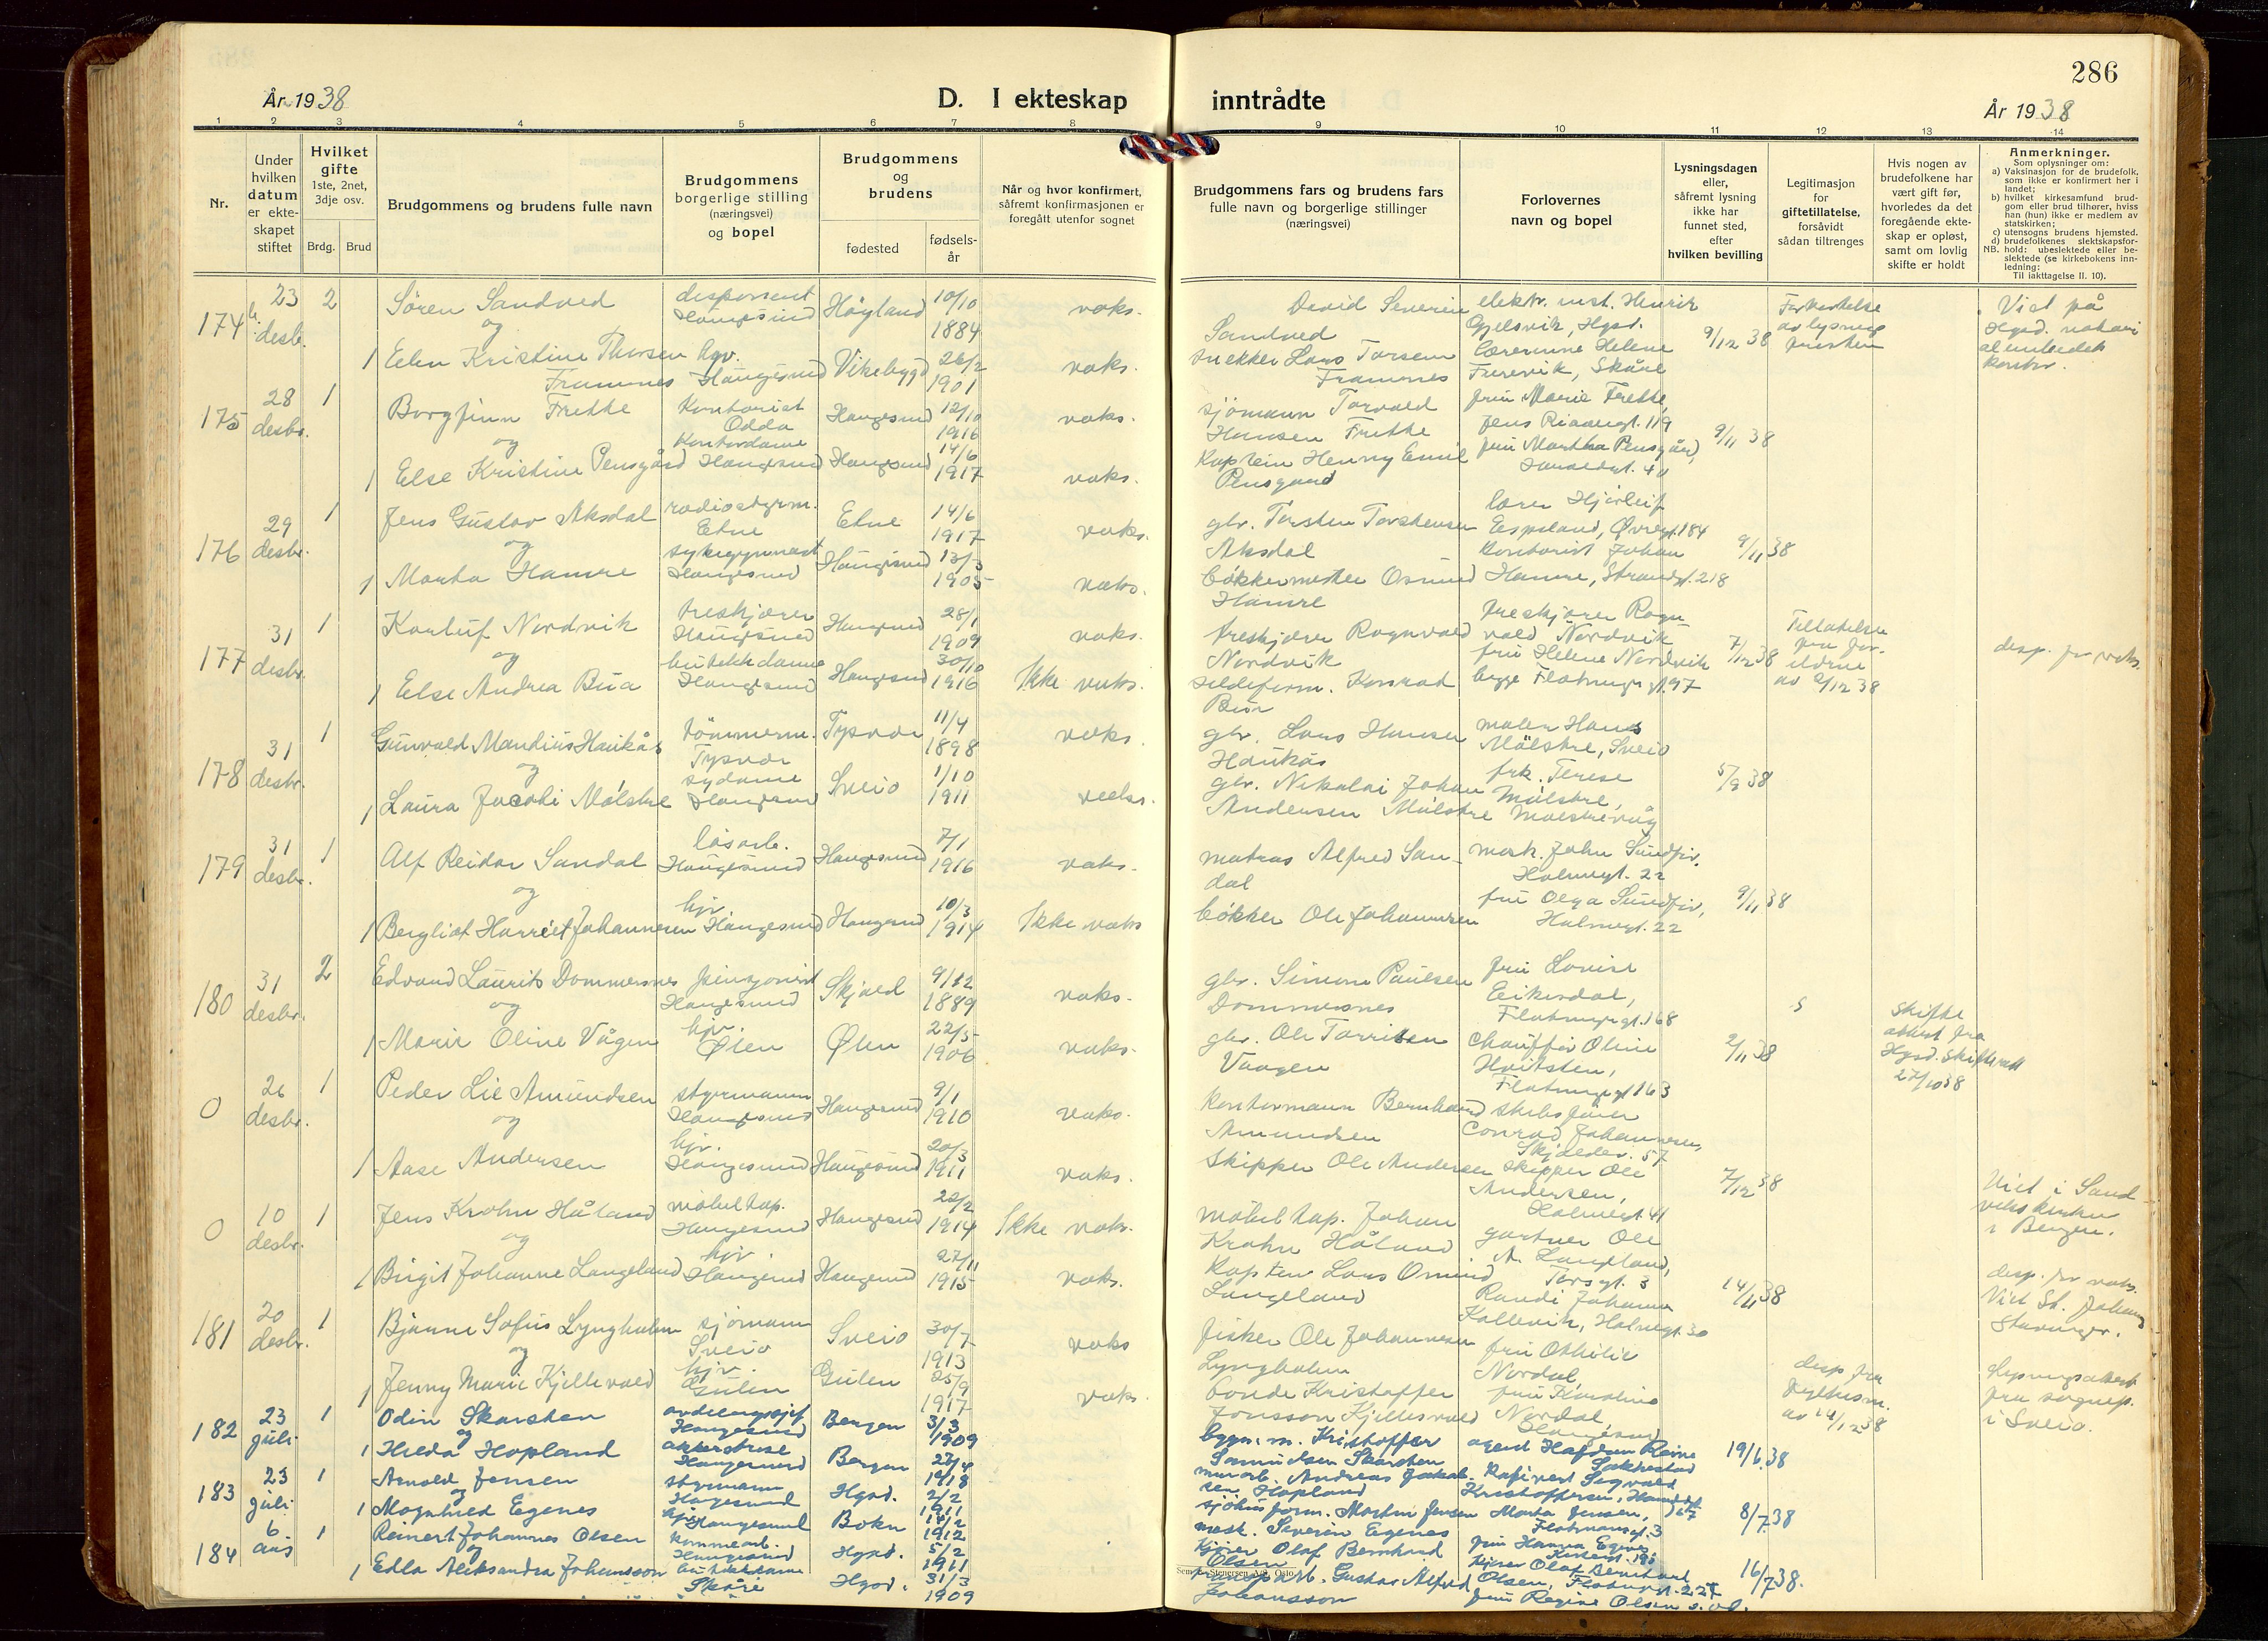 286
År 1938
D. I ekteskap inntrådte
År 1938
1 2 3 4 5 6 7 8 9 10 11 12 13 14
Nr.
Under hvilken datum er ekteskapet stiftet
Hvilket gifte 1ste, 2net, 3dje osv.
Brdg. Brud
Brudgommens og brudens fulle navn
Brudgommens borgerlige stilling (næringsvei) og bopel
Brudgommens og brudens
fødested
fødselsår
Når og hvor konfirmert, såfremt konfirmasjonen er foregått utenfor sognet
Brudgommens fars og brudens fars fulle navn og borgerlige stillinger (næringsvei)
Forlovernes navn og bopel
Lysningsdagen eller, såfremt lysning ikke har funnet sted, efter hvilken bevilling
Legitimasjon for giftetillatelse, forsåvidt sådan tiltrenges
Hvis nogen av brudefolkene har vært gift før, hvorledes da det foregående ekteskap er opløst, samt om lovlig skifte er holdt
Anmerkninger.
Som oplysninger om:
a) Vaksinasjon for de brudefolk, som ikke er konfirmert her i landet;
b) hvilket kirkesamfund brudgom eller brud tilhører, hviss han (hun) ikke er medlem av statskirken;
c) utensogns brudens hjemsted.
d) brudefolkenes slektskapsforhold: ubeslektede eller beslektede (se kirkebokens innledning:
NB.
Til iakttagelse II. 10).
174 23 desbr. 2 Sören Sandved disponent Haugesund Høyland 10/10 1884 vaks. David Severin Sandved elektr. inst. Henrik Gjelsvik, Hgsd. 9/12 38
og
1 Elen Kristine Thorsen Framnes hgv. Haugesund Vikebygd 26/2 1901 vaks. snekker Lars Torsen Framnes lærerinne Helene Furevik, Skåre
Viet på Hgsd.
175 28 desbr. 1 Borgfinn Frette Kontorist Odda Haugesund 12/10 1916 vaks. sjömann Torvald Hansen Frette fru Marie Frette, 119 9/11 38
og
1 Else Kristine Pensgård Kontordame Haugesund Haugesund 14/6 1917 vaks. Kaptein Henny Emil Pensgaard fru Martha Pensgård,
176 29 desbr. 1 Jens Gustav Aksdal radiostyrm. Etne Etne 14/6 1917 vaks. gbr. Torsten Torstensen Aksdal lærer Hjörleif Espeland, Øvregt. 184 9/11 38
og
1 Marta Hamre sykegymnast Haugesund Haugesund 13/3 1905 vaks. bökkermester Osmund Hamre kontorist Johan Hamre, Strandgt. 218
177 31 desbr. 1 Karluf Nordvik treskjærer Haugesund Haugesund 28/1 1909 vaks. treskjærer Rognvald Nordvik treskjærer Rognvald Nordvik 7/12 38
og
1 Else Andrea Bua butikkdame Haugesund Haugesund 30/10 1916 Ikke vaks. sildeform. Konrad Bua fru Helene Nordvik begge Flotmyrgt. 97
desp. for vaks.
178 31 desbr. 1 Gunvald Mandius Haukås tömmerm. Tysvær Tysvær 11/4 1898 vaks. gbr. Lars Hansen Haukås maler Hans Mölstre, Sveio 5/9 38
og
1 Laura Jacobi Mölstre sydame Haugesund Sveio 1/10 1911 vaks. gbr. Nikolai Johan Andersen Mölstre frk. Terese Mölstre, Mölstrevåg
179 31 desbr. 1 Alf Reidar Sandal løsarb. Haugesund Haugesund 7/1 1916 vaks. matros Alfred Sandal Holmegt. 22 9/11 38
og
1 Bergliot Harriet Johannesen hjv. Haugesund Haugesund 10/3 1914 Ikke vaks bökker Ole Johannesen fru Olga Holmegt. 22
180 31 desbr. 2 Edvard Laurits Dommersnes pensjonist Haugesund Skjold 9/12 1889 vaks. gbr. Simon Paulsen Dommersnes fru Lovise Eikesdal, Flotmyrgt. 168 2/11 38
og
1 Marie Oline Vågen hjv. Ølen Ølen 22/5 1906 vaks. gbr. Ole Vaagen Flotmyrgt. 163
Skifteattest fra Hgsd. skifterett 27/10 38
0 26 desbr. 1 Peder Lie Amundsen styrmann Haugesund Haugesund 9/1 1910 vaks. kontormann Bernhard Amundsen skibsfører Conrad Johannesen, 57 7/12 38
og
1 Aase Andersen hjv. Haugesund Haugesund 20/3 1911 vaks. Skipper Ole Andersen skipper Ole Andersen, Holmegt. 41
Viet i Sandvikskirken i Bergen.
0 10 desbr. 1 Jens Krohn Håland møbeltap. Haugesund Haugesund 22/2 1914 Ikke vaks. möbeltap. Johan Krohn Håland gartner Ole A. Langeland, Torsgt. 3 14/11 38
og
1 Birgit Johanne Langeland hjv. Haugesund Haugesund 27/11 1915 vaks. Kaptein Lars Osmund Langeland Randi Johanne Kallevik, Holmegt. 30
desp. for vaks. Viet St. Johannes Stavanger.
181 20 desbr. 1 Bjarne Sofus Lyngholm sjömann Sveio Sveio 30/7 1913 vaks fisker Ole Johannesen Lyngholm fru Othilie Nordal,
og
1 Jenny Marie Kjellevold hjv. Gulen Gulen 25/9 1917 vaks. bonde Kristoffer Jonsson Kjellevold Nordal, Haugesund
Lysningsattest fra sognepr. i Sveio.
182 23 juli 1 Odin Skarsten avdelingssjef Haugesund Bergen 3/3 1909 bygn. m. Kristoffer Samuelsen Skarsten agent Halfdan Reine 19/6 38
og
1 Hilda Hopland Haugesund Bergen 27/4 1918 murarb. Andreas Jakobsen Hopland Sigvald Kristoffersen,
183 23 juli 1 Arnold Jensen styrmann Haugesund Hgsd. 2/2 1911 Martin Jensen Marta Jensen, Flotmyrgt. 3 8/7 38
og
1 Magnhild Egenes hjv. Haugesund Bokn 1912 mask. Severin Egenes fru Hanna Egenes
184 6 aug 1 Reinert Johannes Olsen Haugesund Hgsd. 5/2 1911 kjører Olaf Bernhard Olsen kjører Olaf Bernhard Olsen, Flotmyrgt. 227 16/7 38.
og
1 Edla Aleksandra Johansson butikkdame Skåre Hgsd. 31/3 1909 Gustav Alfred Johansson fru Regine Olsen s. st.